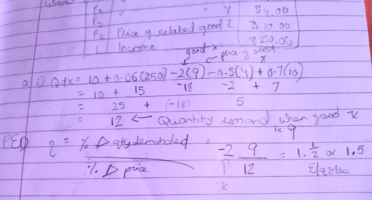 P2 " Y $4.00
Pz Price of related good Z $10.00
I Income $250.00
good x price of good x
a i) Qdx = 10 + 0.06(250) - 2(9) - 0.5(4) + 0.7(10)
= 10 + 15 -18 -2 + 7
= 25 + (-18) 5
= 12 ← Quantity demand when good x is 9
PED η = % Δ qty demanded = -2 9 = 1.½ or 1.5
% Δ price 1 12 Elastic